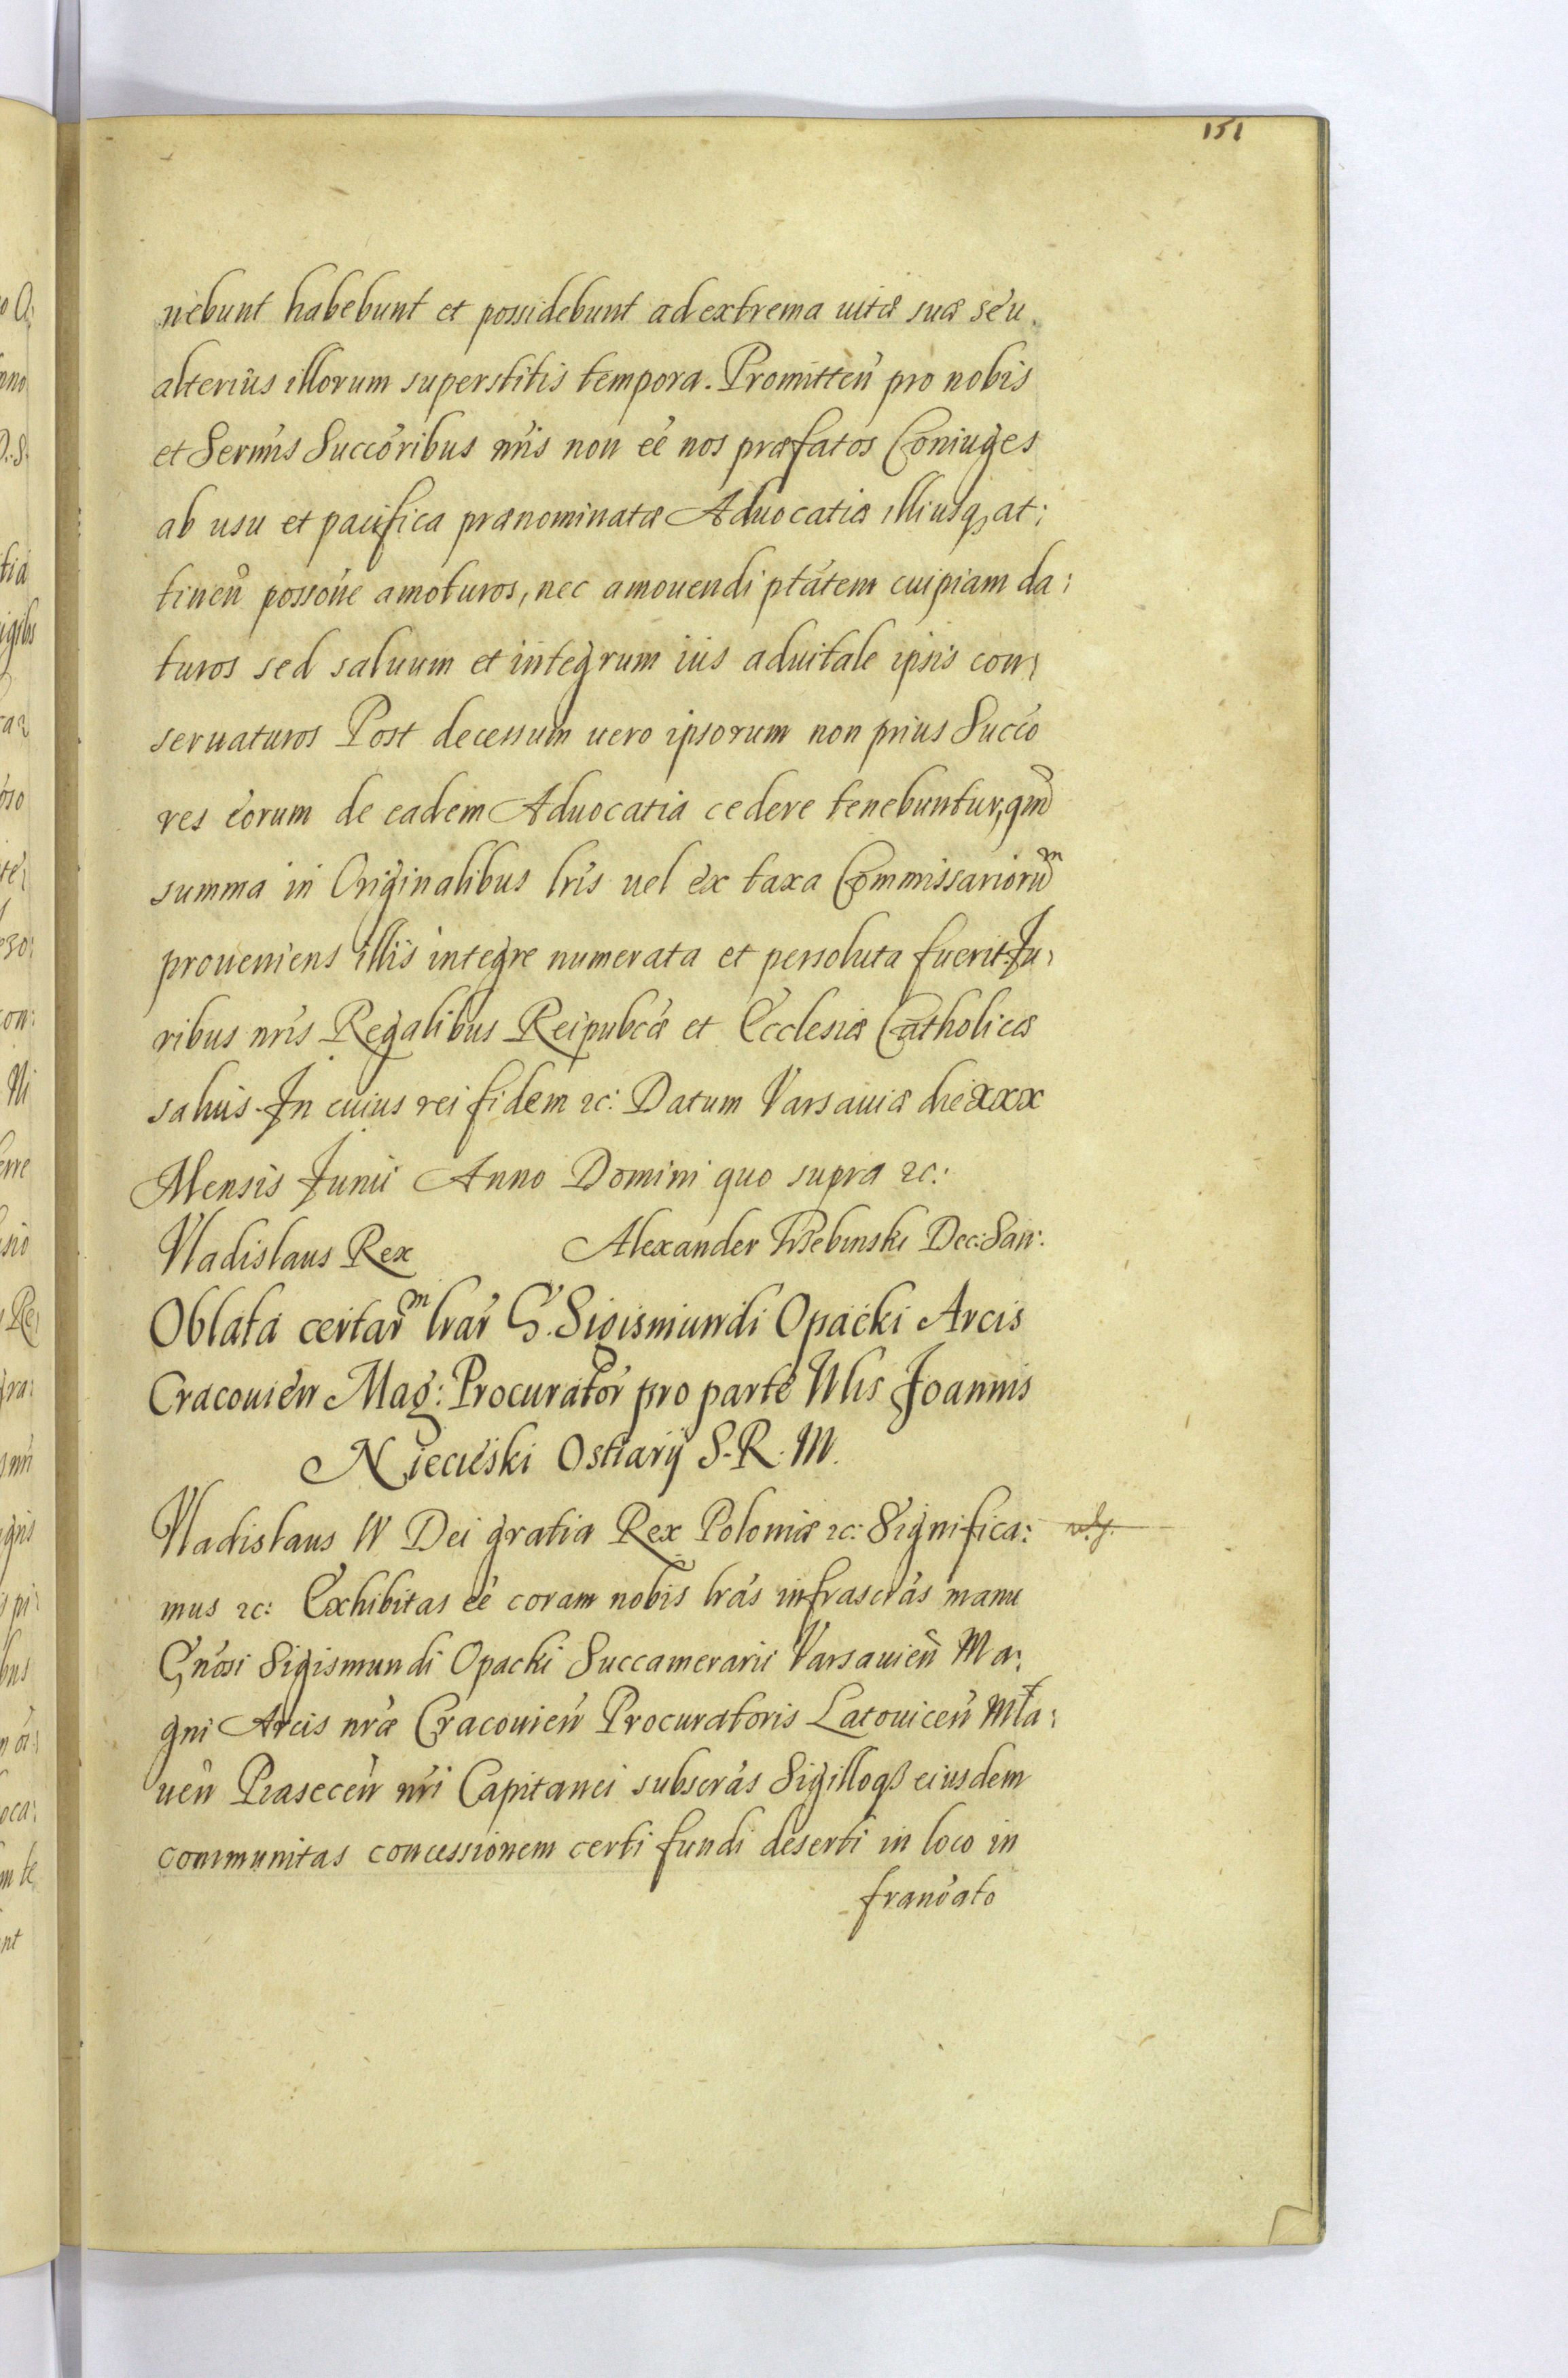 151
nebunt habebunt et possidebunt ad extrema uitæ suæ seu
alterius illorum superstitis tempora. Promitteń pro nobis
et Sermis Succoribus nris non eé nos præfatos Coniuges
ab usu et pacifica prænominatæ Aduocatiæ illiusq, at:
tineń possońe amoturos, nec amouendi ptátem cuipiam da:
turos sed saluum et integrum ius aduitale ipsis con:
seruaturos Post decessum uero ipsorum non prius Succo
res eorum de eadem Aduocatia cedere tenebuntur, qm̃
summa in Originalibus lris uel ex taxa Commissariorũ
proueniens illis integre numerata et persoluta fuerit. Ju:
ribus nris Regalibus Reipubcæ et Ecclesiæ Catholicæ
saluis. In cuius rei fidem ꝛc: Datum Varsauiæ die XXX
Mensis Junii Anno Domini quo supra ꝛc:
Vladislaus Rex Alexander Trzebinski Dec: San:
Oblata certarm lrar G. Sigismundi Opacki Arcis
Cracouień Mag: Procurator pro parte Nlis Joannis
Niecieski Ostiarij S. R. M.
Vladislaus IV Dei gratia Rex Poloniæ ꝛc: Significa:
mus ꝛc: Exhibitas eé coram nobis lrás infrascrás manu
Gnosi Sigismundi Opacki Succamerarii Varsauień Ma:
gni Arcis nræ Cracouień Procuratoris Latouiceń Mła:
ueń Piaseceń nri Capitanei subscrás Sigilloqß eiusdem
communitas concessionem certi fundi deserti in loco in
franoato